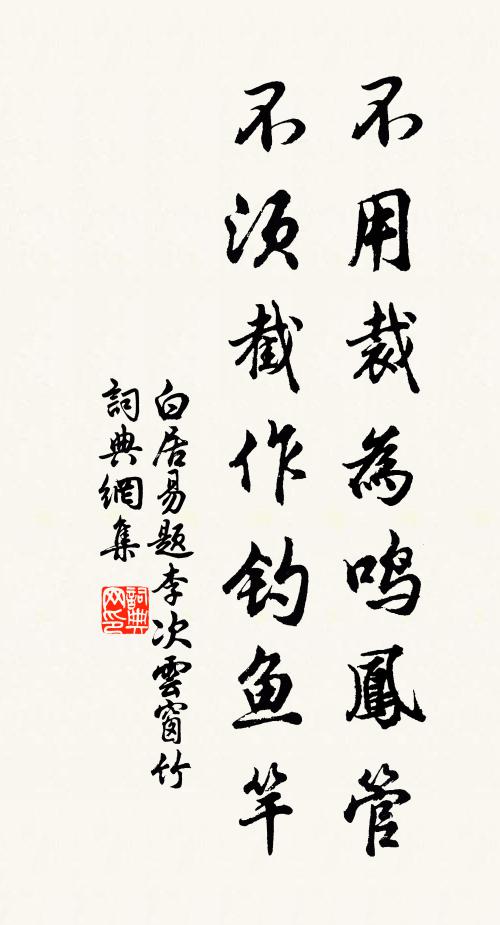 不用裁為鸣鳳管
不须截作钓鱼竿
白居易题李次雲窗竹
詞典網集
詞典网印